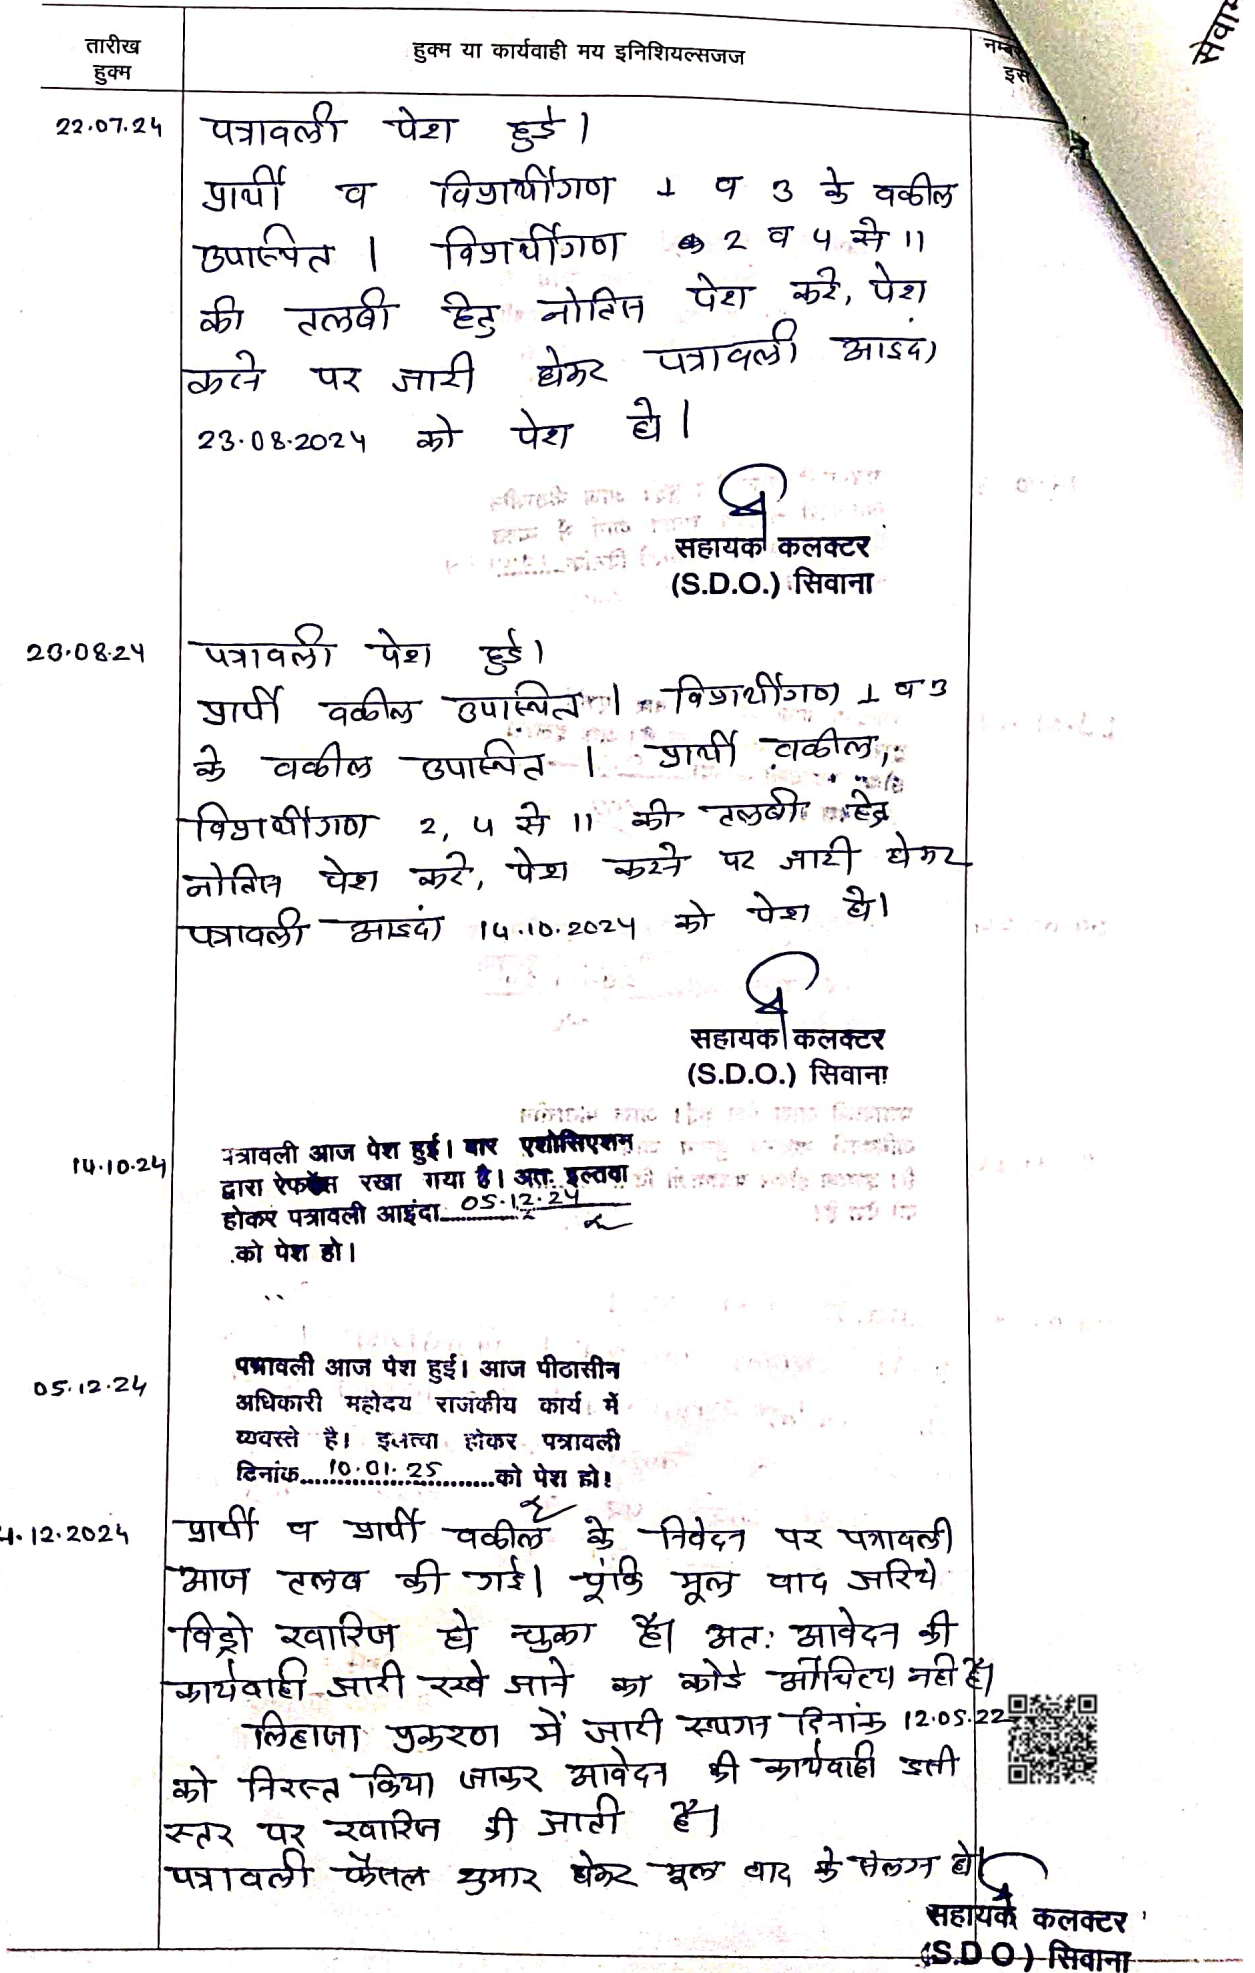 तारीख
हुक्म
हुक्म या कार्यवाही मय इनिशियल्सजज
नम्बर
इस
सेवाम
22.07.24
पत्रावली पेश हुई।
प्रार्थी व विप्रार्थीगण 1 व 3 के वकील
उपास्थित। विप्रार्थीगण 2 व 4 से 11
की तलबी हेतु नोटिस पेश करे, पेश
करने पर जारी होकर पत्रावली आइंदा
23.08.2024 को पेश हो।
सहायक कलक्टर
(S.D.O.) सिवाना
23.08.24
पत्रावली पेश हुई।
प्रार्थी वकील उपास्थित। विप्रार्थीगण 1 व 3
के वकील उपास्थित। प्रार्थी वकील,
विप्रार्थीगण 2, 4 से 11 की तलबी हेतु
नोटिस पेश करे, पेश करने पर जारी होकर
पत्रावली आइंदा 14.10.2024 को पेश हो।
सहायक कलक्टर
(S.D.O.) सिवाना
14.10.24
पत्रावली आज पेश हुई। बार एशोसिएशन
द्वारा रखा गया है। अतः इल्तवा
होकर पत्रावली आइंदा 05.12.24
को पेश हो।
05.12.24
पत्रावली आज पेश हुई। आज पीठासीन
अधिकारी महोदय राजकीय कार्य में
व्यवस्ते है। इल्तवा होकर पत्रावली
दिनांक 10.01.25 को पेश हो।
4.12.2024
प्रार्थी व प्रार्थी वकील के निवेदन पर पत्रावली
आज तलब की गई। चूंकि मूल वाद जरिये
विड्रो खारिज हो चुका है। अतः आवेदन की
कार्यवाही जारी रखे जाने का कोई औचित्य नहीं है।
लिहाजा प्रकरण में जारी स्थगन दिनांक 12.05.22
को निरस्त किया जाकर आवेदन की कार्यवाही इसी
स्तर पर खारिज की जाती है।
पत्रावली फैसल शुमार होकर मूल वाद के संलग्न हो।
सहायक कलक्टर
(S.D.O) सिवाना